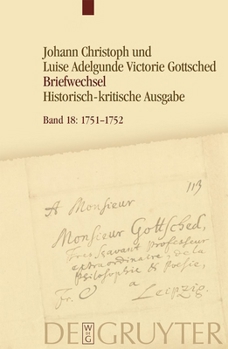 Johann Christoph und
Luise Adelgunde Victorie Gottsched
Briefwechsel
Historisch-kritische Ausgabe
Band 18: 1751–1752
113
A Monsieur
Monsieur Gottsched,
Tres Savant professeur
extraordinaire, de la
philosophie & Poesie,
Fr. a Leipzig.
DE GRUYTER
W
DE
G